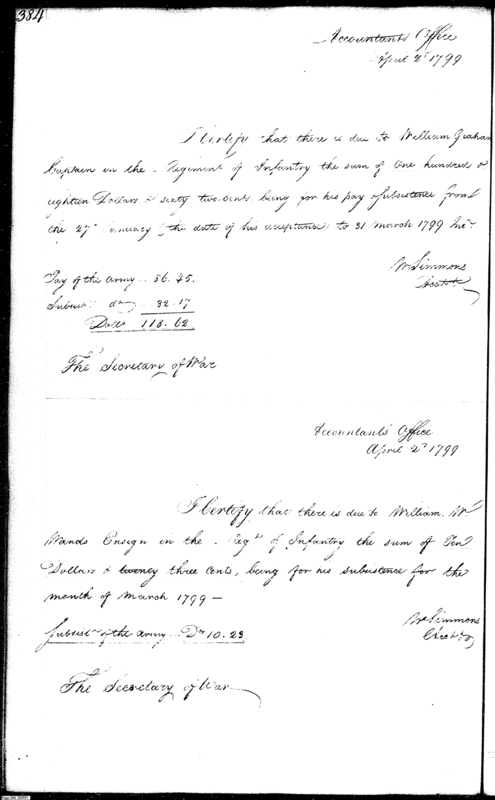 384
Accountants Office
April 2d 1799
I Certify that there is due to William Graham
Captain in the Regiment of Infantry the sum of One hundred &
eighteen Dollars & sixty two Cents, being for his pay & subsistence from
the 27th January (the date of his acceptance) to 31 March 1799 Ince.
Wm Simmons
Acctt
Pay of the Army .. 86. 45.
Subsist: do .. 32. 17
Dolls 118. 62
The Secretary of War
Accountants Office
April 2d 1799
I Certify that there is due to William Wr
Wands Ensign in the Regt of Infantry the sum of Ten
Dollars & twenty three Cents, being for his subsistence for the
month of March 1799 —
Wm Simmons
Acctt
Subsist: of the Army .. Drs 10. 23
The Secretary of War